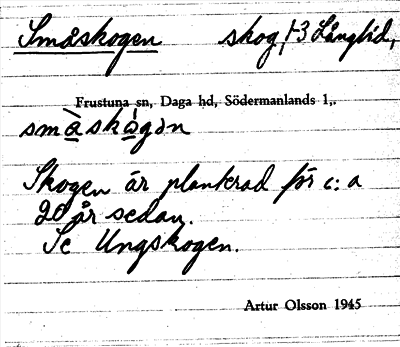 Småskogen skog, 1-3 Långlid,
Frustuna sn, Daga hd, Södermanlands l,.
småskogən
Skogen är planterad för c:a
20 år sedan.
Se Ungskogen.
Artur Olsson 1945